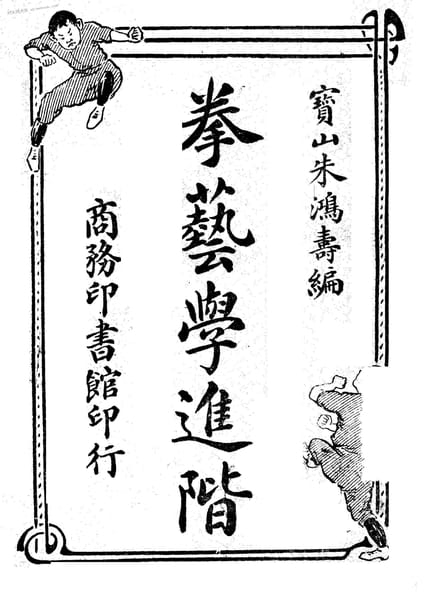 寶山朱鴻壽編
拳藝學進階
商務印書館印行